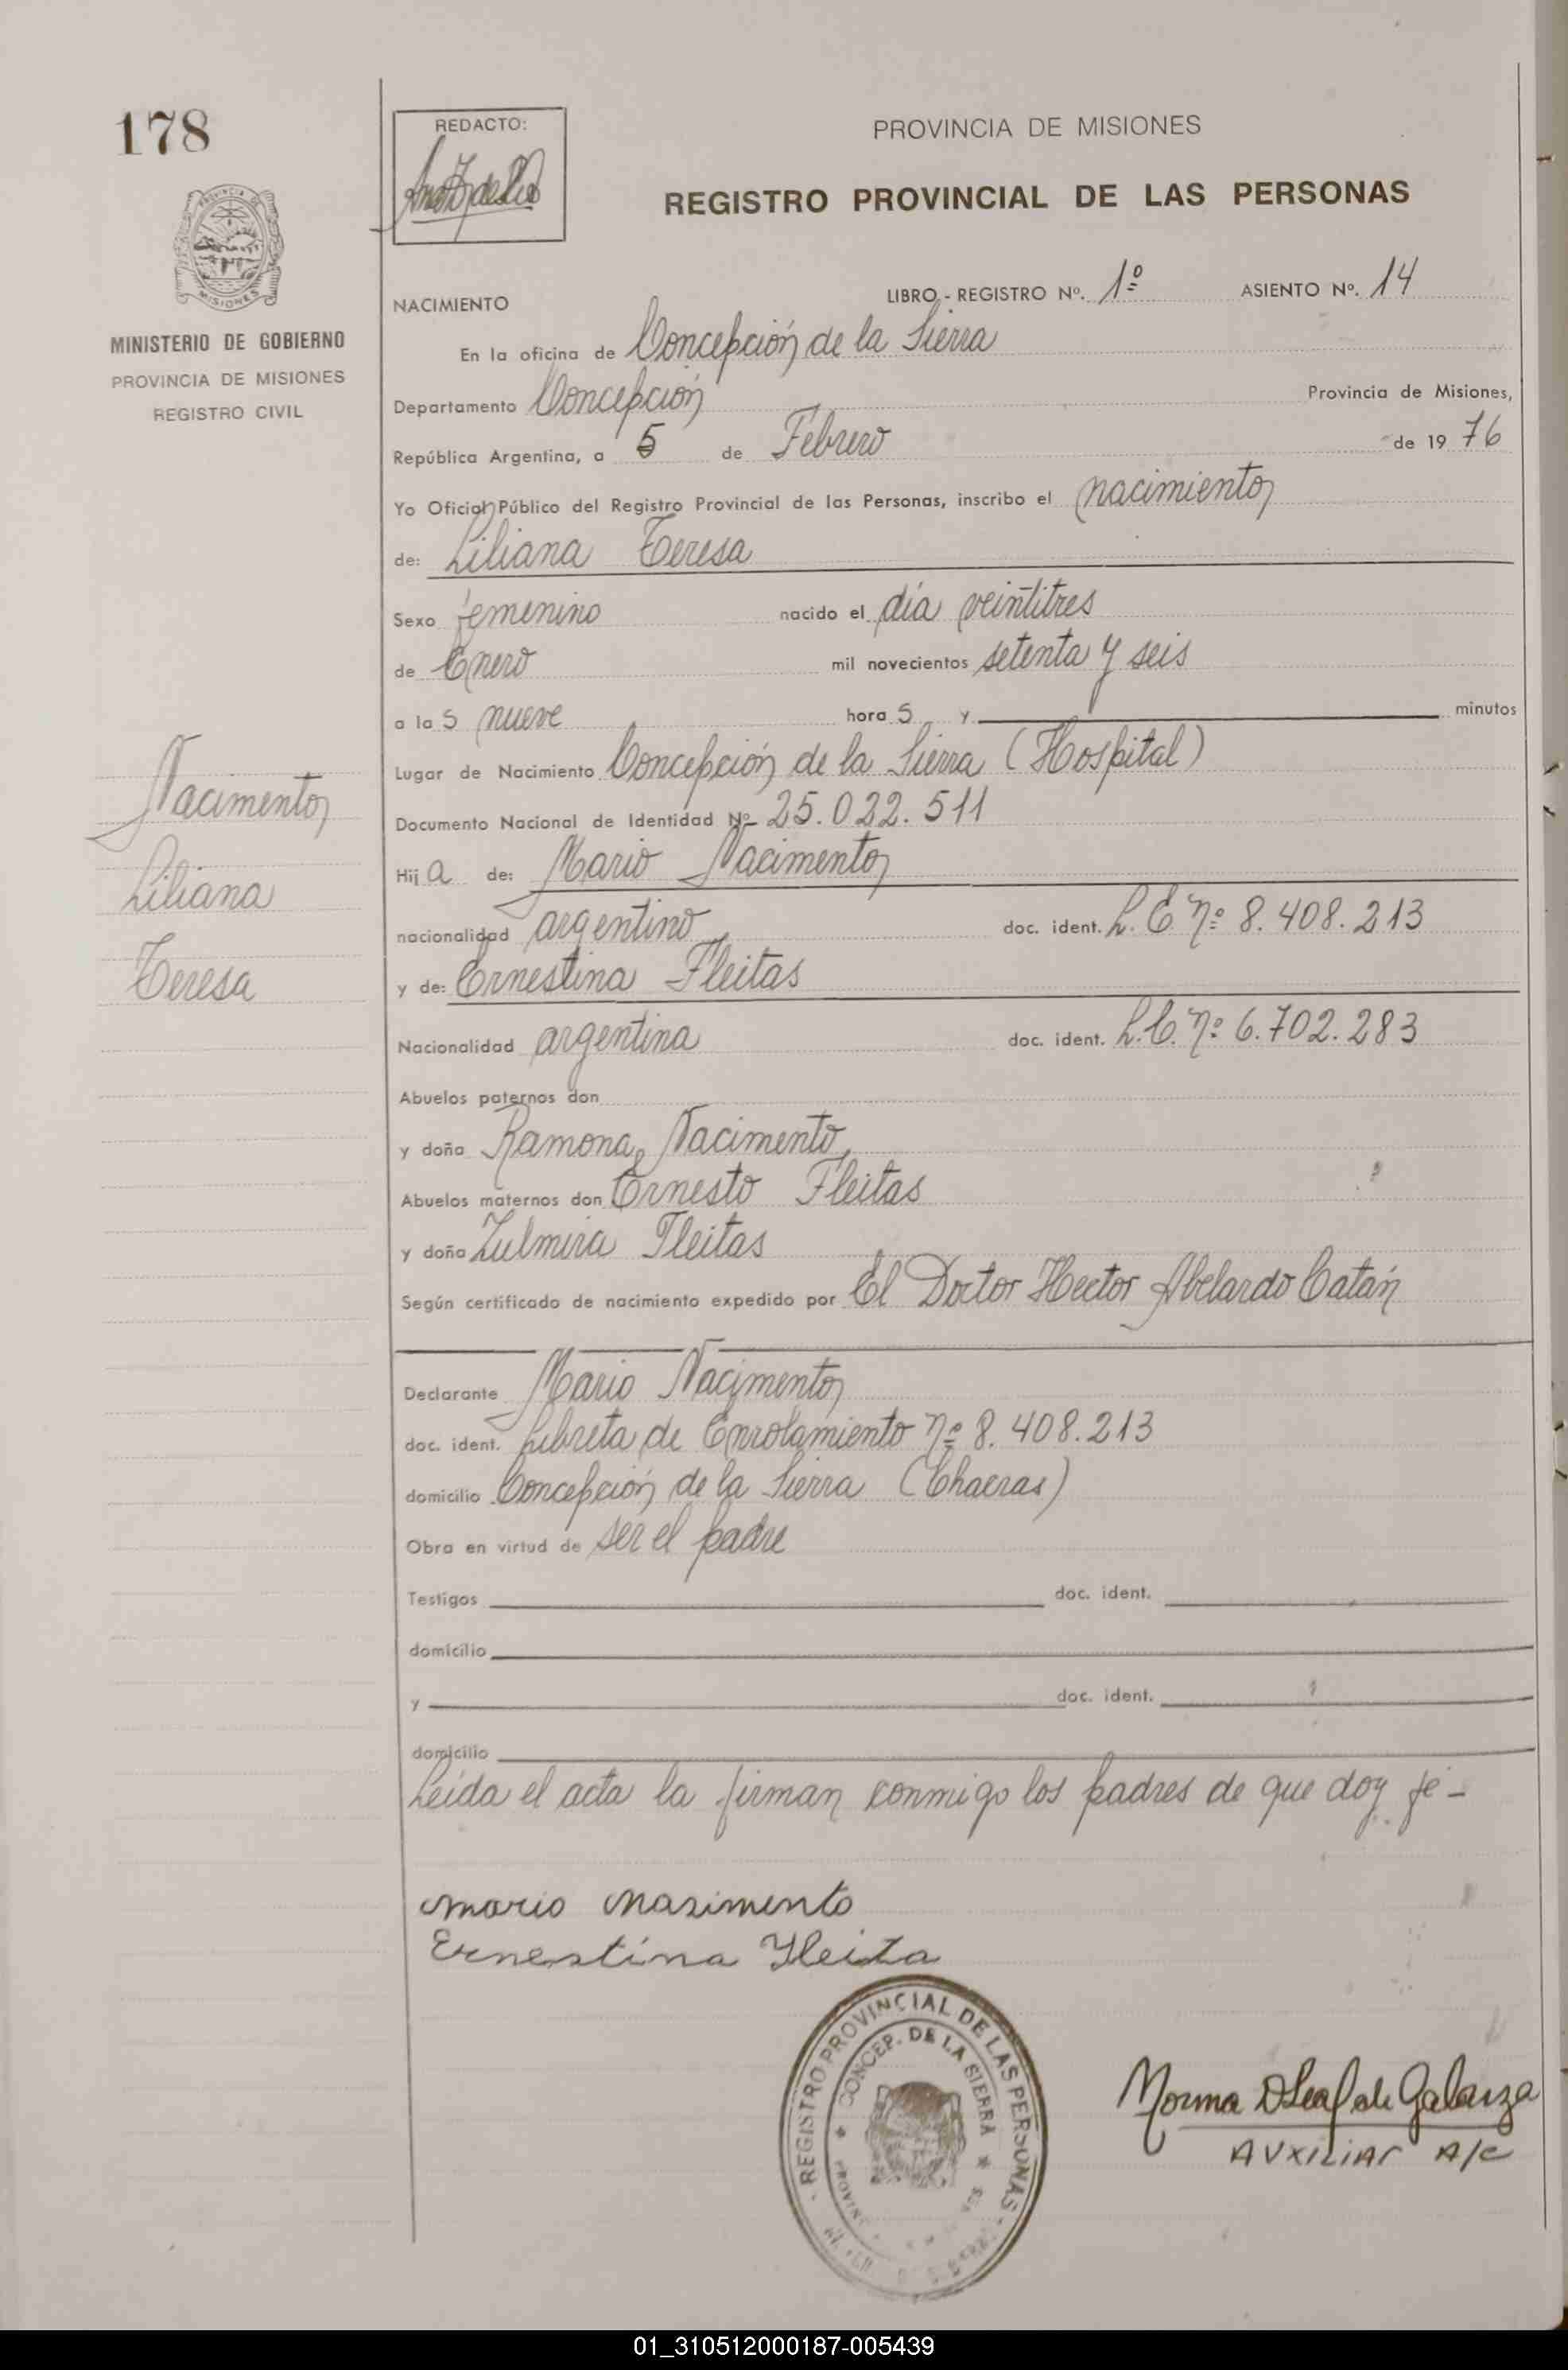 178
REDACTO:
PROVINCIA DE MISIONES
REGISTRO PROVINCIAL DE LAS PERSONAS
MISIONES
MINISTERIO DE GOBIERNO
PROVINCIA DE MISIONES
REGISTRO CIVIL
NACIMIENTO LIBRO - REGISTRO Nº. 1º ASIENTO Nº. 14
En la oficina de Concepción de la Sierra
Departamento Concepción Provincia de Misiones,
República Argentina, a 5 de Febrero de 19 76
Yo Oficial Público del Registro Provincial de las Personas, inscribo el nacimiento
de: Liliana Teresa
Sexo femenino nacido el día veintitres
de Enero mil novecientos setenta y seis
a las nueve horas y minutos
Lugar de Nacimiento Concepción de la Sierra (Hospital)
Documento Nacional de Identidad Nº 25.022.511
Hija de: Mario Nacimento
nacionalidad argentino doc. ident. L.E nº 8.408.213
y de: Ernestina Fleitas
Nacionalidad argentina doc. ident. L.C. nº 6.702.283
Abuelos paternos don
y doña Ramona Nacimento
Abuelos maternos don Ernesto Fleitas
y doña Zulmira Fleitas
Según certificado de nacimiento expedido por El Doctor Hector Abelardo Catán
Declarante Mario Nacimento
doc. ident. Libreta de Enrolamiento nº 8.408.213
domicilio Concepción de la Sierra (Chacras)
Obra en virtud de ser el padre
Testigos doc. ident.
domicilio
y doc. ident.
domicilio
Leída el acta la firman conmigo los padres de que doy fé -
Nacimento
Liliana
Teresa
Mario Nasimento
Ernestina Fleita
REGISTRO PROVINCIAL DE LAS PERSONAS
CONCEP. DE LA SIERRA
Norma D Leal de Galarza
AUXILIAR A/C
01_310512000187-005439